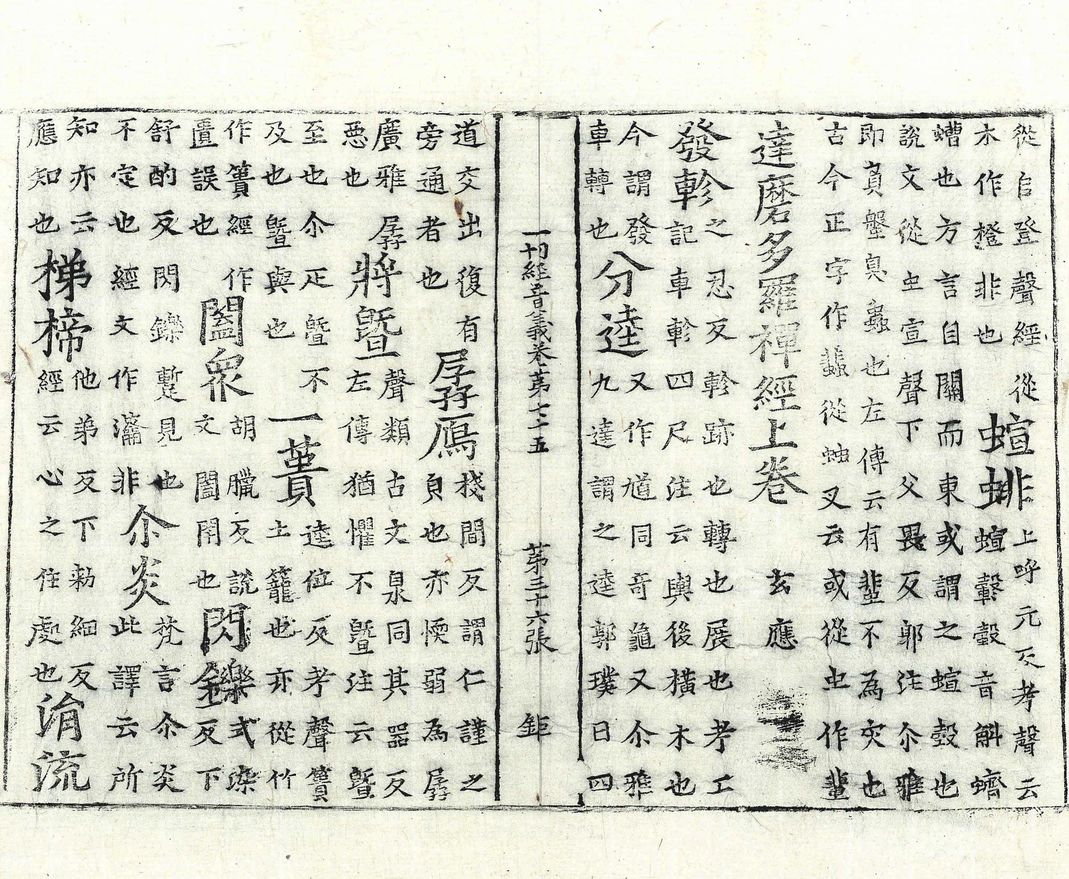 從自登聲經從
木作橙非也蝖蜚上呼元反考聲云
螬也方言自關而東或謂之蝖蝖轂也
說文從虫宣聲下父畏反郭注尒雅
即負盤臭蟲也左傳云有蜚不為灾也
古今正字作蜚從䖵又云或從虫作蜚
達磨多羅禪經上卷 玄應
發軫之忍反軫跡也轉也展也考工
記車軫四尺注云輿後橫木也
今謂發軫又作𨒪同奇龜又尒雅
車轉也分逵九達謂之逵郭璞曰四
一切經音義卷第七十五 第三十六張 鉅
道交出復有孱鴈棧間反謂仁謹之
旁通者也
廣雅孱將曁聲類古文泉同其器反
惡也左傳猶懼不曁注云曁
至也尒疋曁不一蕢逵位反考聲簣
及也曁與也土籠也亦從竹
作簣經作闔衆胡臘反說文闔閇也閃鑠式染反下
置誤也
舒酌反閃鑠蹔見也尒炎梵言尒炎
不定也經文作濷非此譯云所
知亦云梯𣓀他弟反下勑細反
應知也經云心之住處也㳙流